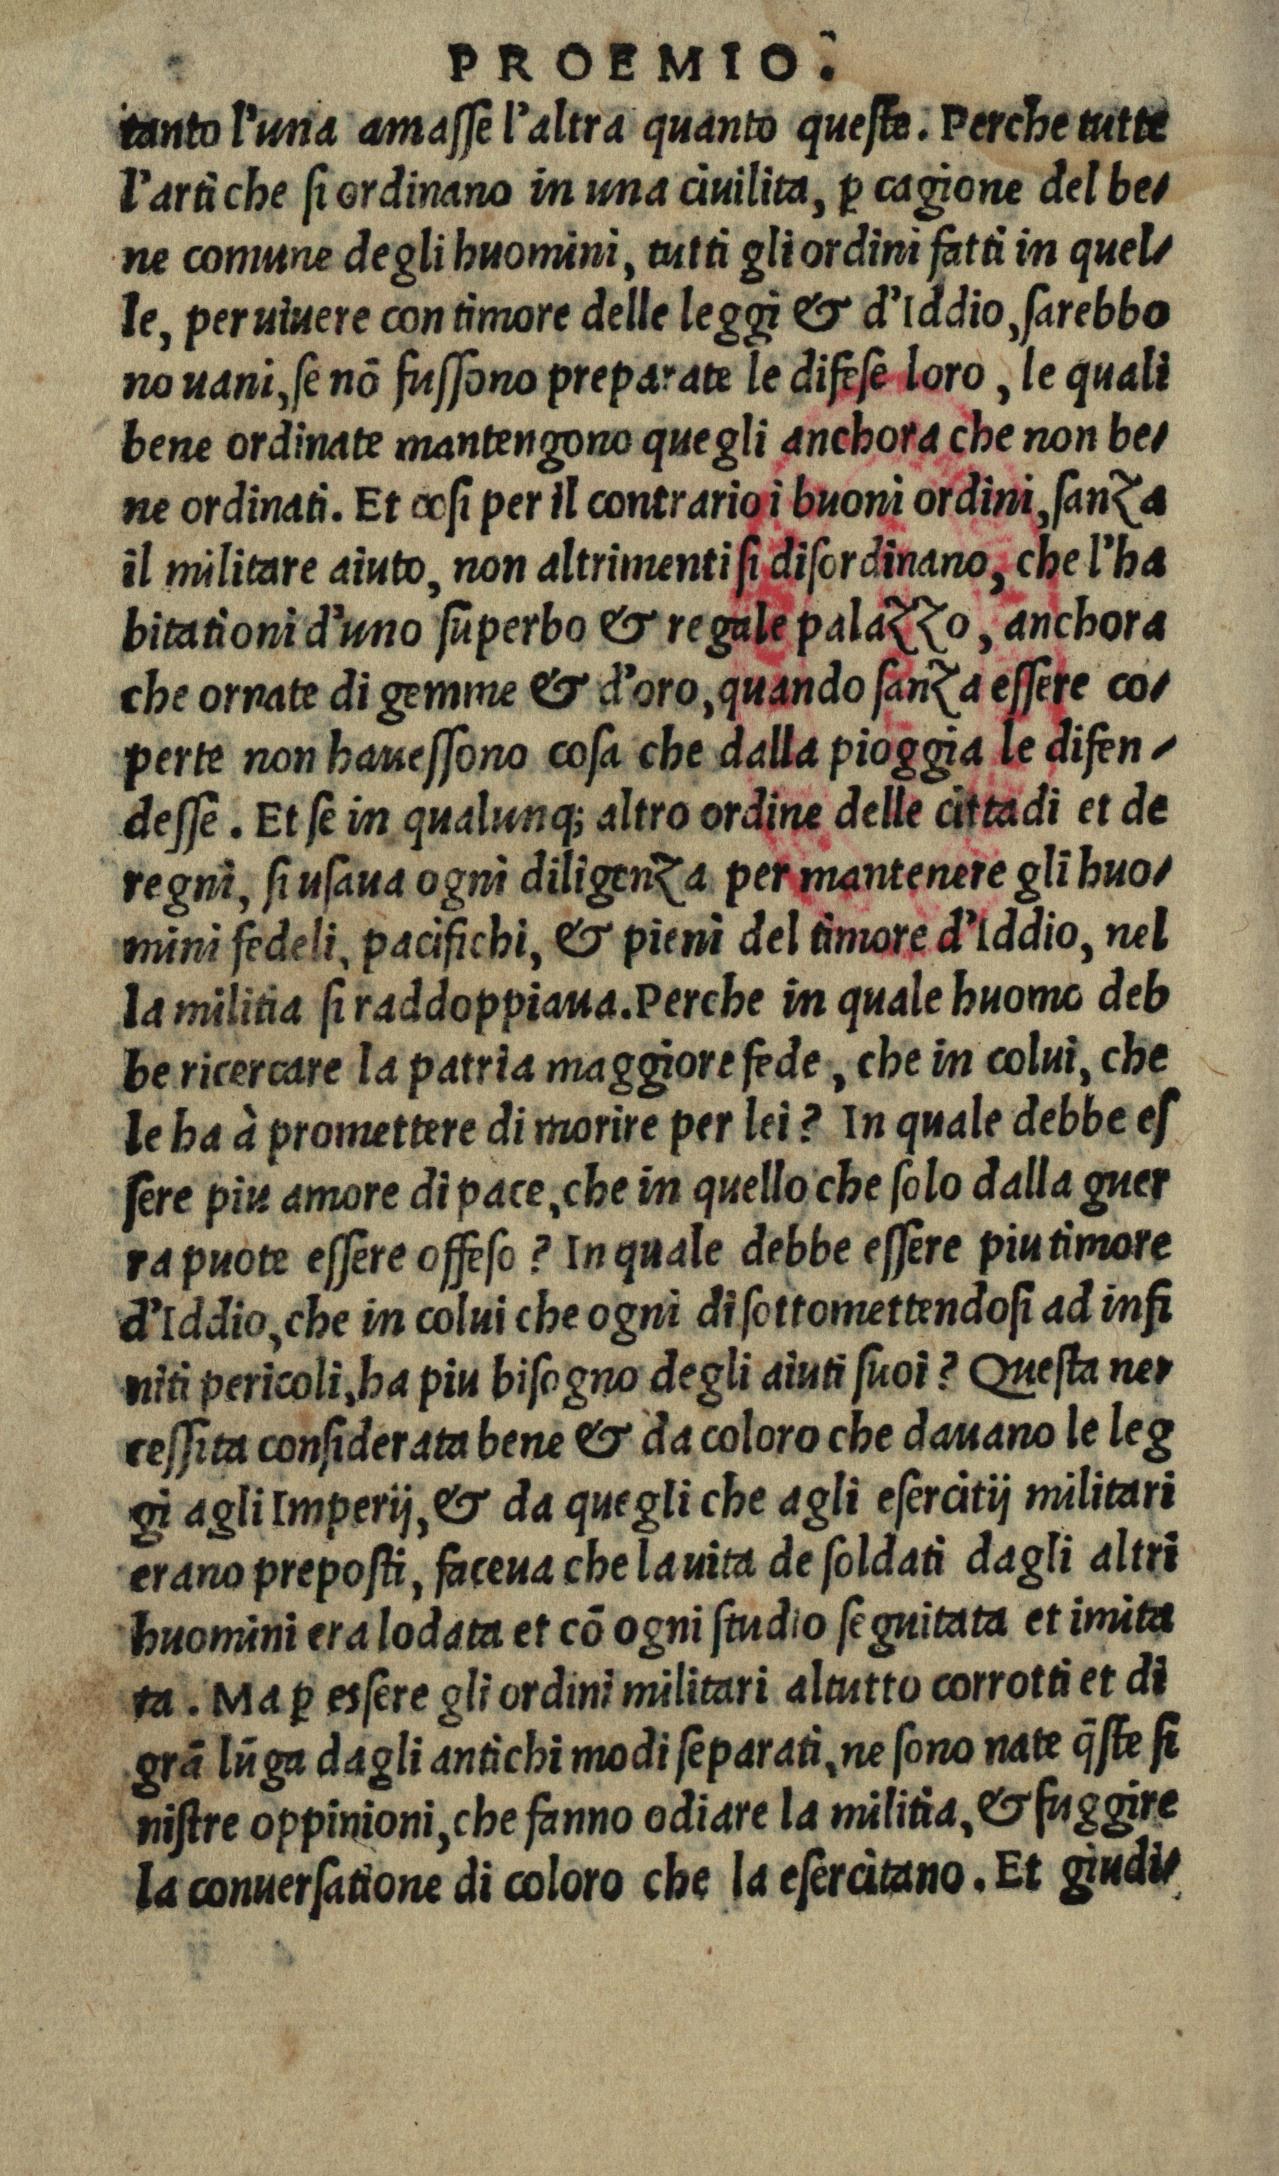 PROEMIO.
tanto l'una amasse l'altra quanto queste. Perche tutte
l'arti che si ordinano in una ciuilita, ꝑ cagione del be-
ne comune degli huomini, tutti gli ordini fatti in quel-
le, per uiuere con timore delle leggi & d'Iddio, sarebbo
no uani, se nō fussono preparate le difese loro, le quali
bene ordinate mantengono quegli anchora che non be-
ne ordinati. Et cosi per il contrario i buoni ordini, sanza
il militare aiuto, non altrimenti si disordinano, che l'ha
bitationi d'uno superbo & regale palazzo, anchora
che ornate di gemme & d'oro, quando sanza essere co-
perte non hauessono cosa che dalla pioggia le difen-
desse. Et se in qualunq; altro ordine delle cittadi et de
regni, si usaua ogni diligenza per mantenere gli huo-
mini fedeli, pacifichi, & pieni del timore d'Iddio, nel
la militia si raddoppiaua. Perche in quale huomo deb
be ricercare la patria maggiore fede, che in colui, che
le ha à promettere di morire per lei? In quale debbe es
sere piu amore di pace, che in quello che solo dalla guer
ra puote essere offeso? In quale debbe essere piu timore
d'Iddio, che in colui che ogni di sottomettendosi ad infi
niti pericoli, ha piu bisogno degli aiuti suoi? Questa ne-
cessita considerata bene & da coloro che dauano le leg
gi agli Imperij, & da quegli che agli esercitij militari
erano preposti, faceua che la uita de soldati dagli altri
huomini era lodata et cō ogni studio seguitata et imita
ta. Ma ꝑ essere gli ordini militari altutto corrotti et di
grā lūga dagli antichi modi separati, ne sono nate q̄ste si
nistre oppinioni, che fanno odiare la militia, & fuggire
la conuersatione di coloro che la esercitano. Et giudi-